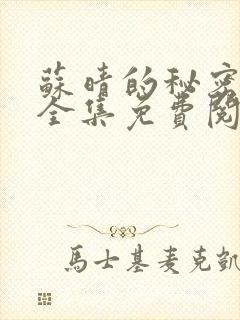 蘇晴的秘密
全集免費閱
馬士基麥克凱